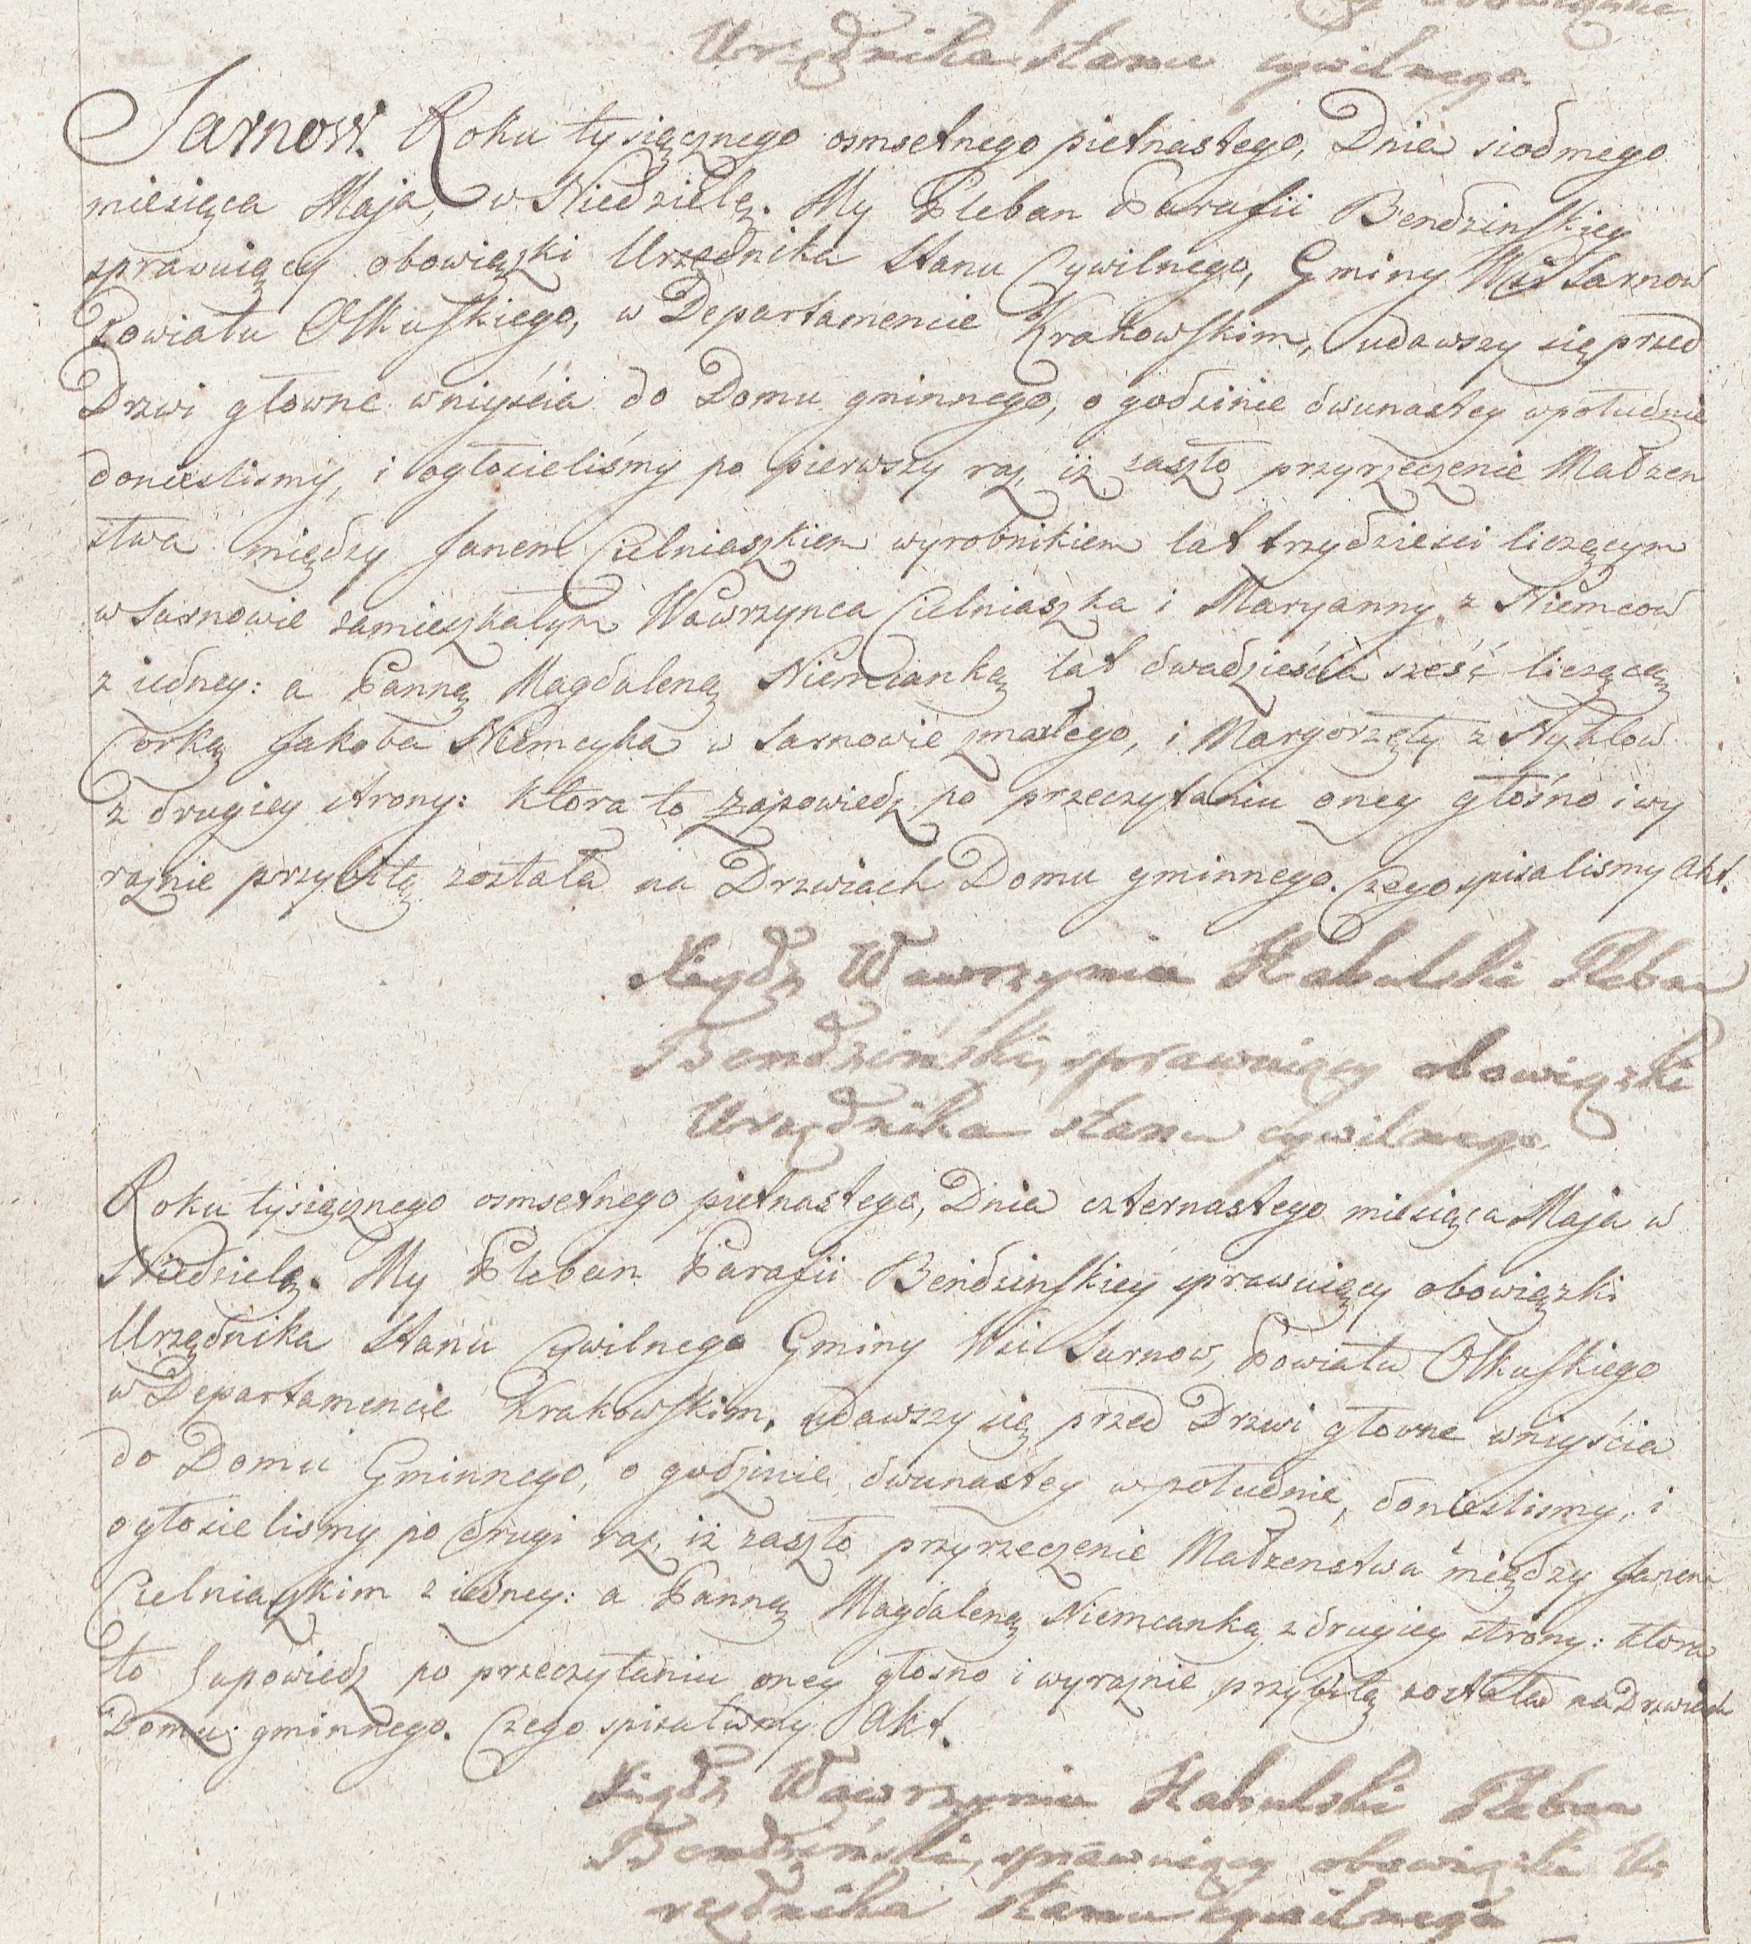 Urzędnika stanu cywilnego.
Sarnow. Roku tysiącznego osmsetnego pietnastego, Dnia siodmego
miesiąca Maja, w Niedzielę. My Pleban Parafii Bendzinskiey
sprawuiący obowiązki Urzędnika Stanu Cywilnego, Gminy Wsi Sarnow
Powiatu Olkuskiego, w Departamencie Krakowskim, udawszy się przed
Drzwi głowne wniyścia do Domu gminnego, o godzinie dwunastey w południe
doniesliśmy, i ogłosieliśmy po pierwszy raz, iż zaszło przyrzeczenie Małzen
stwa między Janem Cielniaszkiem wyrobnikiem lat trzydzieści liczącym
w Sarnowie zamieszkałym Wawrzynca Cielniaszka i Maryanny z Niemcow
z iedney: a Panną Magdaleną Niemcianką lat dwadzieścia sześć liczącą
Corką Jakoba Niemcyka w Sarnowie zmarłego, i Margorzęty z Nyklow
z drugiey strony: ktora to zapowiedz po przeczytaniu oney głośno i wy
raznie przybitą została na Drzwiach Domu gminnego. Czego spisalismy Akt.
Xiądz Wawrzyniec Pleban
Bendziński, sprawuiący obowiązki
Urzędnika stanu cywilnego
Roku tysiącznego osmsetnego pietnastego, Dnia czternastego miesiąca Maja w
Niedzielę. My Pleban Parafii Bendzinskiey sprawuiący obowiązki
Urzędnika Stanu Cywilnego Gminy Wsi Sarnow, Powiatu Olkuskiego
w Departamencie Krakowskim, udawszy się przed Drzwi głowne wniyścia
do Domu Gminnego, o godzinie dwunastey w południe, doniesliśmy, i
ogłosielismy po drugi raz, iż zaszło przyrzeczenie Małzenstwa między Janem
Cielniaszkim z iedney: a Panną Magdaleną Niemcanką z drugiey strony: ktora
to Zapowiedz po przeczytaniu oney głosno i wyraznie przybitą została na Drzwiach
Domu gminnego. Czego spisalismy Akt.
Xiądz Wawrzyniec Pleban
Bendziński, sprawuiący obowiązki U
rzędnika stanu cywilnego